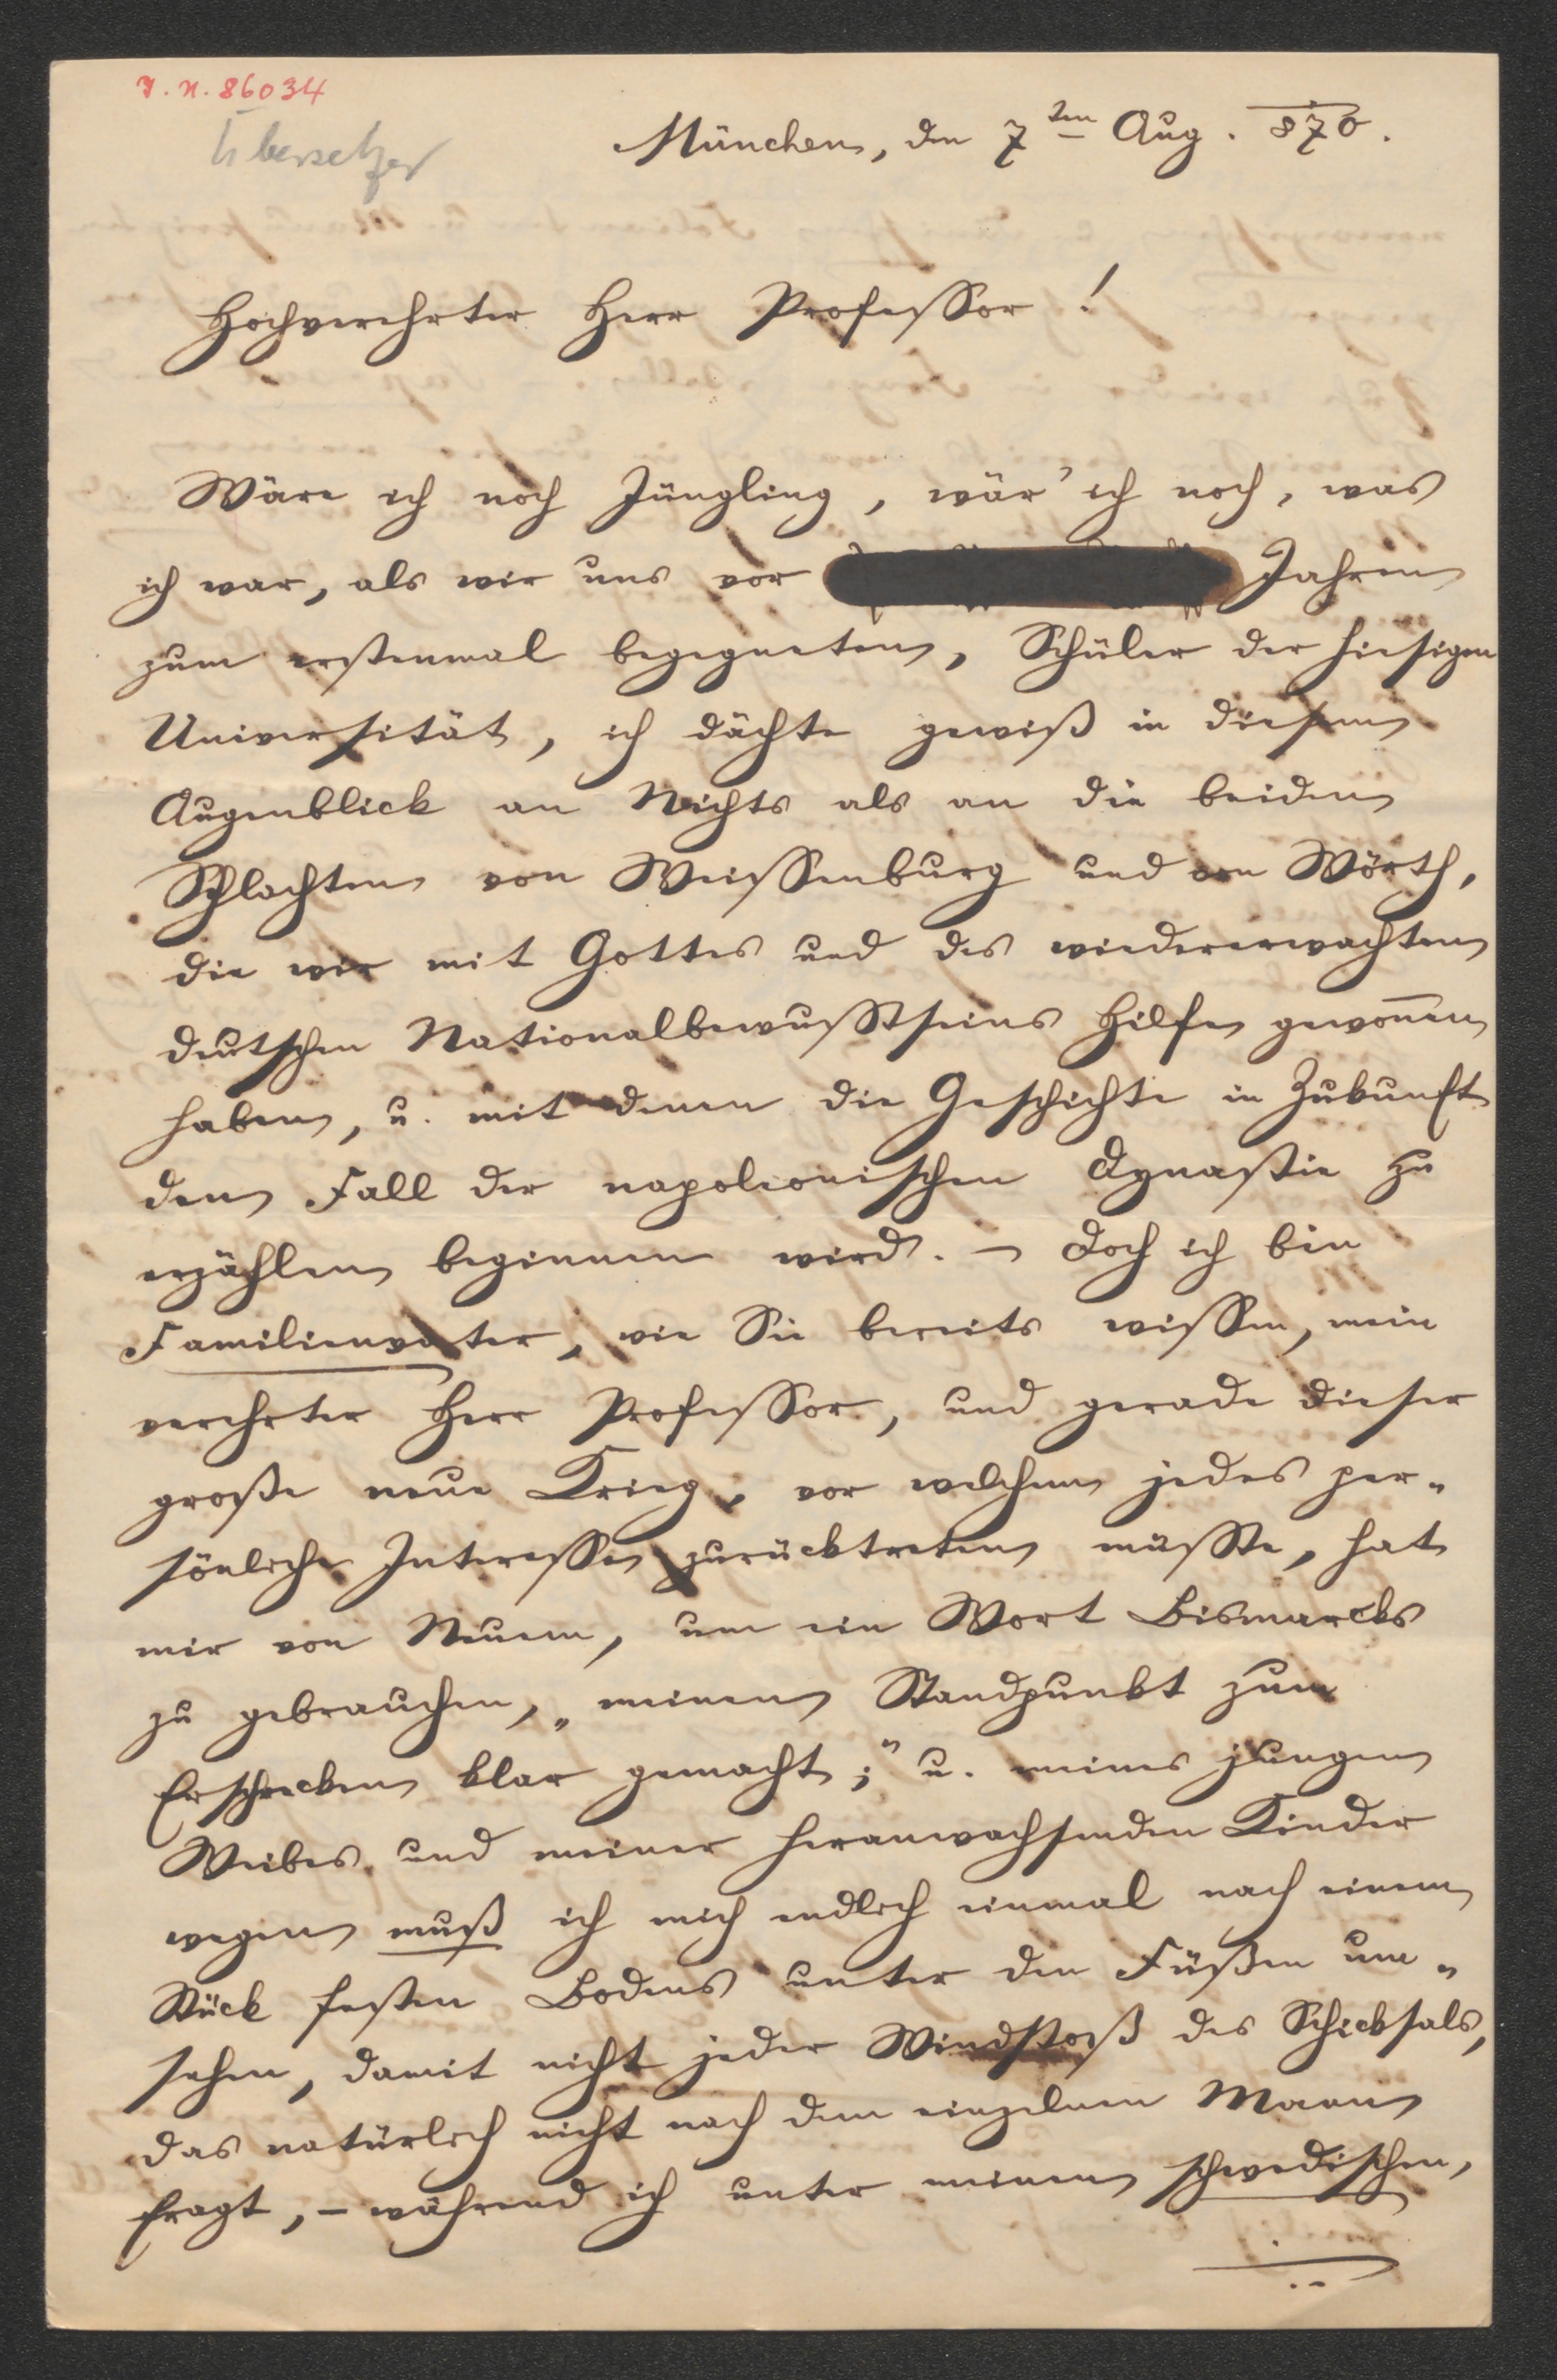 J. N. 86034
Übersetzer
München, den 7ten Aug. 870.
Hochverehrter Herr Professor!
Wäre ich noch Jüngling, wär' ich noch, was
ich war, als wir uns vor Jahren
zum erstenmal begegneten, Schüler der hiesigen
Universität, ich dächte gewiß in diesem
Augenblick an Nichts als an die beiden
Schlachten von Weissenburg und von Wörth,
die wir mit Gottes und des wiedererwachten
deutschen Nationalbewusstseins Hilfe gewon̄en
haben, u. mit denen die Geschichte in Zukunft
den Fall der napoleonischen Dynastie zu
erzählen beginnen wird. – Doch ich bin
Familienvater, wie Sie bereits wissen, mein
verehrter Herr Professor, und gerade dieser
große neue Krieg, vor welchem jedes per„
sönliche Interesse zurücktreten müsste, hat
mir von Neuem, um ein Wort Bismarcks
zu gebrauchen, „meinen Standpunkt zum
Erschrecken klar gemacht;" u. meines jungen
Weibes und meiner heranwachsenden Kinder
wegen muß ich mich endlich einmal nach einem
Stück festen Bodens unter den Füßen um„
sehen, damit nicht jeder Windstoß des Schicksals,
das natürlich nicht nach dem einzelnen Mann
fragt, – während ich unter meinen schwedischen,